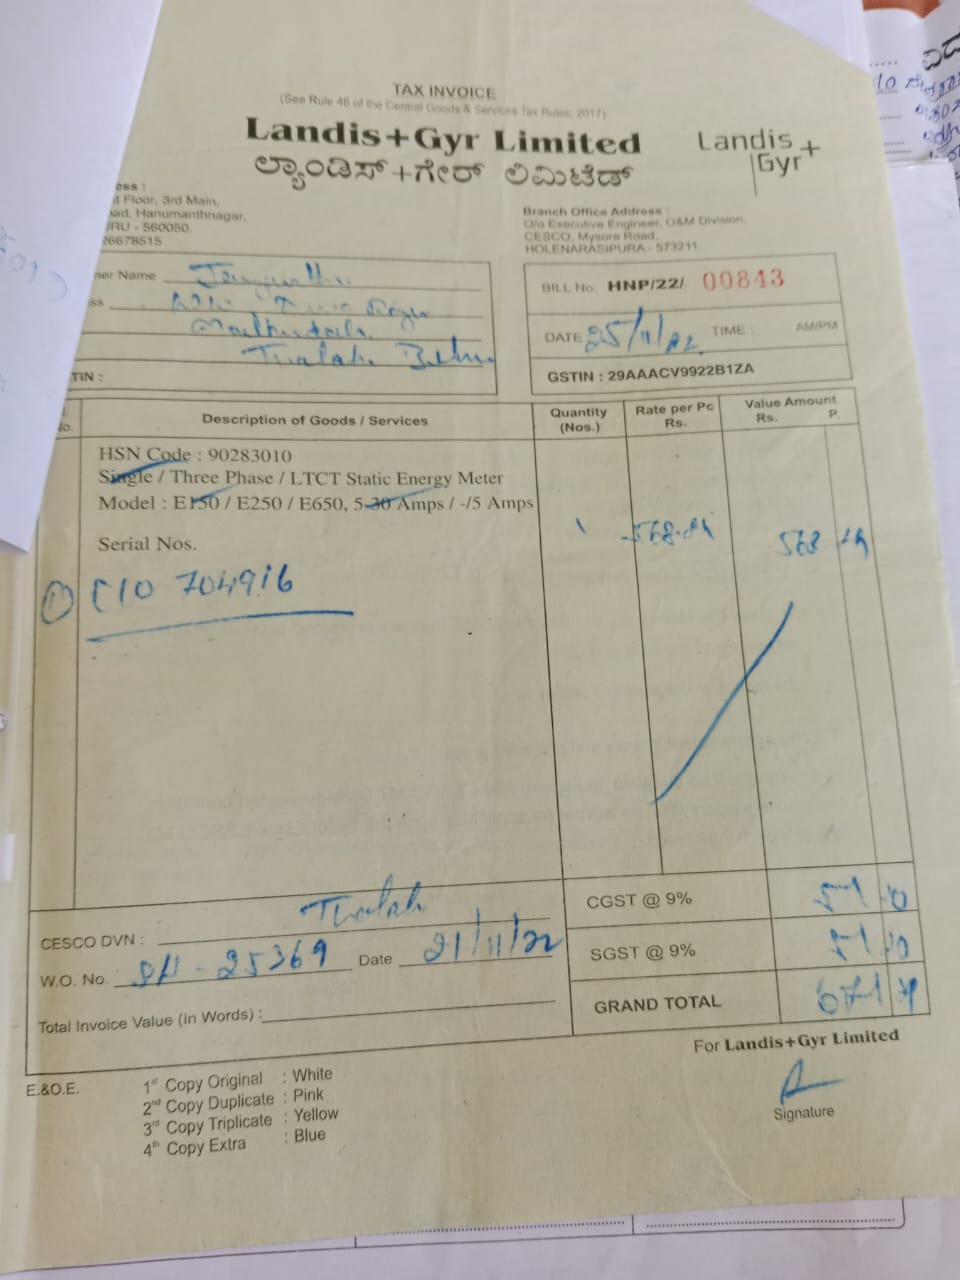 TAX INVOICE
(See Rule 46 of the Central Goods & Services Tax Rules, 2017)
Landis+Gyr Limited
ಲ್ಯಾಂಡಿಸ್+ಗೇರ್ ಲಿಮಿಟೆಡ್
Landis+
Gyr
ess :
t Floor, 3rd Main,
ad, Hanumanthnagar,
RU - 560050.
26678515
Branch Office Address :
O/o Executive Engineer, O&M Division,
CESCO, Mysore Road,
HOLENARASIPURA - 573211.
ner Name
ss
TIN :
BILL No. HNP/22/ 00843
DATE 25/11/22 TIME : AM/PM
GSTIN : 29AAACV9922B1ZA
No. Description of Goods / Services Quantity (Nos.) Rate per Pc Rs. Value Amount Rs. P.
HSN Code : 90283010
Single / Three Phase / LTCT Static Energy Meter
Model : E150 / E250 / E650, 5-30 Amps / -/5 Amps
1 568 568
Serial Nos.
① 704916
CESCO DVN :
W.O. No. 25369 Date 21/11/22
Total Invoice Value (in Words) :
CGST @ 9% 51
SGST @ 9% 51
GRAND TOTAL 671
For Landis+Gyr Limited
Signature
E.&O.E.
1st Copy Original : White
2nd Copy Duplicate : Pink
3rd Copy Triplicate : Yellow
4th Copy Extra : Blue